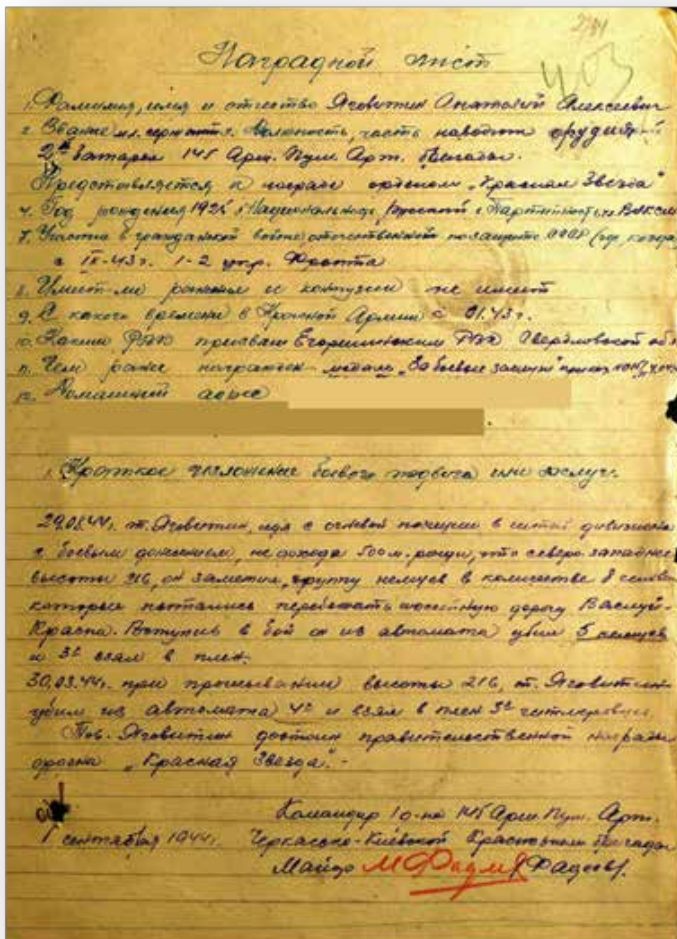 403
Наградной лист
1. Фамилия, имя и отчество Яговитин Анатолий Алексеевич
2. Звание мл. сержант 3. Должность, часть наводчик орудия
2й батареи 145 Арм. Пуш. Арт. Бригады.
Представляется к награде орденом „Красная Звезда"
4. Год рождения 5. Национальность русский 6. Партийность чл. ВЛКСМ
7. Участие в гражданской войне, отечественной по защите СССР (где, когда)
с IX-43г. 1-2 укр. Фронта
8. Имеет-ли ранения и контузии не имеет
9. С какого времени в Красной Армии с 01.43г.
10. Каким РВК призван Егоршинским РВК Свердловской обл.
11. Чем ранее награжден медаль „За боевые заслуги"
12. Домашний адрес
1. Краткое изложение боевого подвига или заслуг.
29.08.44г. т. Яговитин, идя с огневой позиции в штаб дивизиона
с боевым донесением, не доходя 500 м. рощи, что северо-западнее
высоты 216, он заметил группу немцев в количестве 8 человек
которые пытались перебежать шоссейную дорогу Васлуй-
Красна. Вступив в бой он из автомата убил 5 немцев
и 3х взял в плен.
при прочесывании высоты 216, т. Яговитин
убил из автомата 4х и взял в плен 3х гитлеровцев.
Тов. Яговитин достоин правительственной награды
ордена „Красная Звезда". -
Командир 1о-на 145 Арм. Пуш. Арт.
1 сентября 1944г. Черкасско-Киевской Краснознам. бригады
Майор (Фадеев).